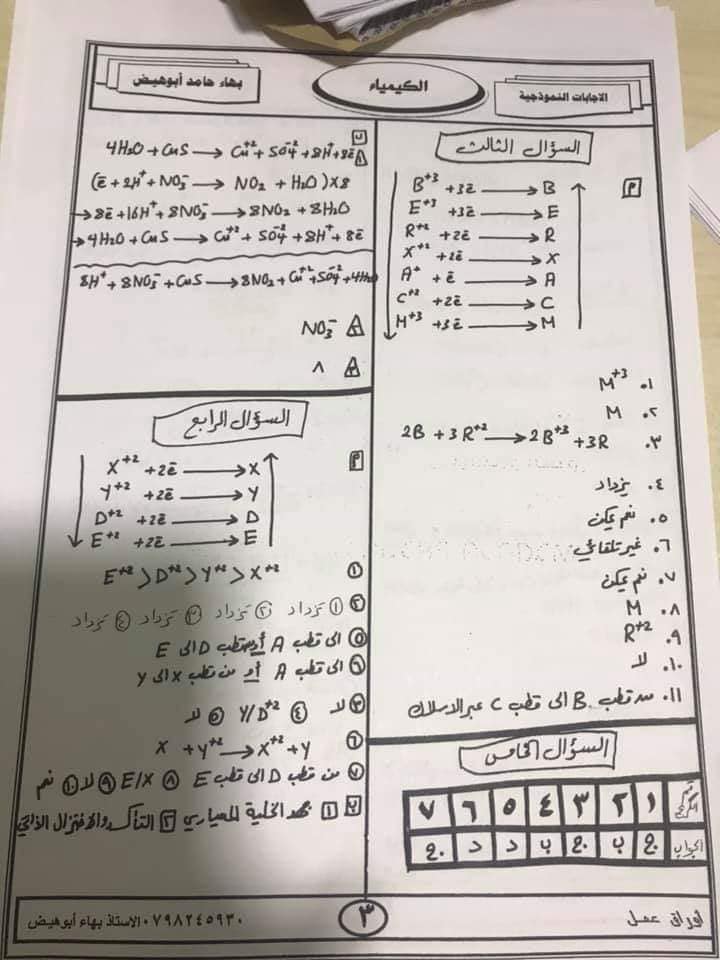 الاجابات النموذجية
الكيمياء
بهاء حامد أبوهيض
السؤال الثالث
أ
B⁺³ +3ē ⟶ B
E⁺³ +3ē ⟶ E
R⁺² +2ē ⟶ R
X⁺² +2ē ⟶ X
A⁺ +ē ⟶ A
C⁺² +2ē ⟶ C
M⁺³ +3ē ⟶ M
١. M⁺³
٢. M
٣. 2B + 3R⁺² ⟶ 2B⁺³ + 3R
٤. يزداد
٥. نعم يمكن
٦. غير تلقائي
٧. نعم يمكن
٨. M
٩. R⁺²
١٠. لا
١١. من قطب B الى قطب C عبر الاسلاك
السؤال الخامس
١ ٢ ٣ ٤ ٥ ٦ ٧
الجواب ج ب ج ب د د ج
ب
4H₂O + CuS ⟶ Cu⁺² + SO₄⁻² + 8H⁺ + 8ē
(ē + 2H⁺ + NO₃⁻ ⟶ NO₂ + H₂O) × 8
→ 8ē + 16H⁺ + 8NO₃⁻ ⟶ 8NO₂ + 8H₂O
→ 4H₂O + CuS ⟶ Cu⁺² + SO₄⁻² + 8H⁺ + 8ē
8H⁺ + 8NO₃⁻ + CuS ⟶ 8NO₂ + Cu⁺² + SO₄⁻² + 4H₂O
NO₃⁻
٨
السؤال الرابع
أ
X⁺² +2ē ⟶ X
Y⁺² +2ē ⟶ Y
D⁺² +2ē ⟶ D
E⁺² +2ē ⟶ E
① E⁺² > D⁺² > Y⁺² > X⁺²
② ① تزداد ② تزداد ③ تزداد ④ تزداد
⑤ الى قطب A أو من قطب D الى E
⑥ الى قطب A أو من قطب X الى Y
③ لا ④ Y/D⁺² ⑤ لا
⑥ X + Y⁺² ⟶ X⁺² + Y
⑦ من قطب D الى قطب E ⑧ E/X ⑨ لا ⑩ نعم
١ جهد الخلية المعياري ٢ التأكسد والاختزال الذاتي
أوراق عمل
٣
٠٧٩٨٢٤٥٩٣٠ الاستاذ بهاء أبوهيض